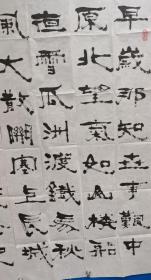 早歲那知世事艱中
原北望氣如山樓船
夜雪瓜洲渡鐵馬秋
風大散關塞上長城